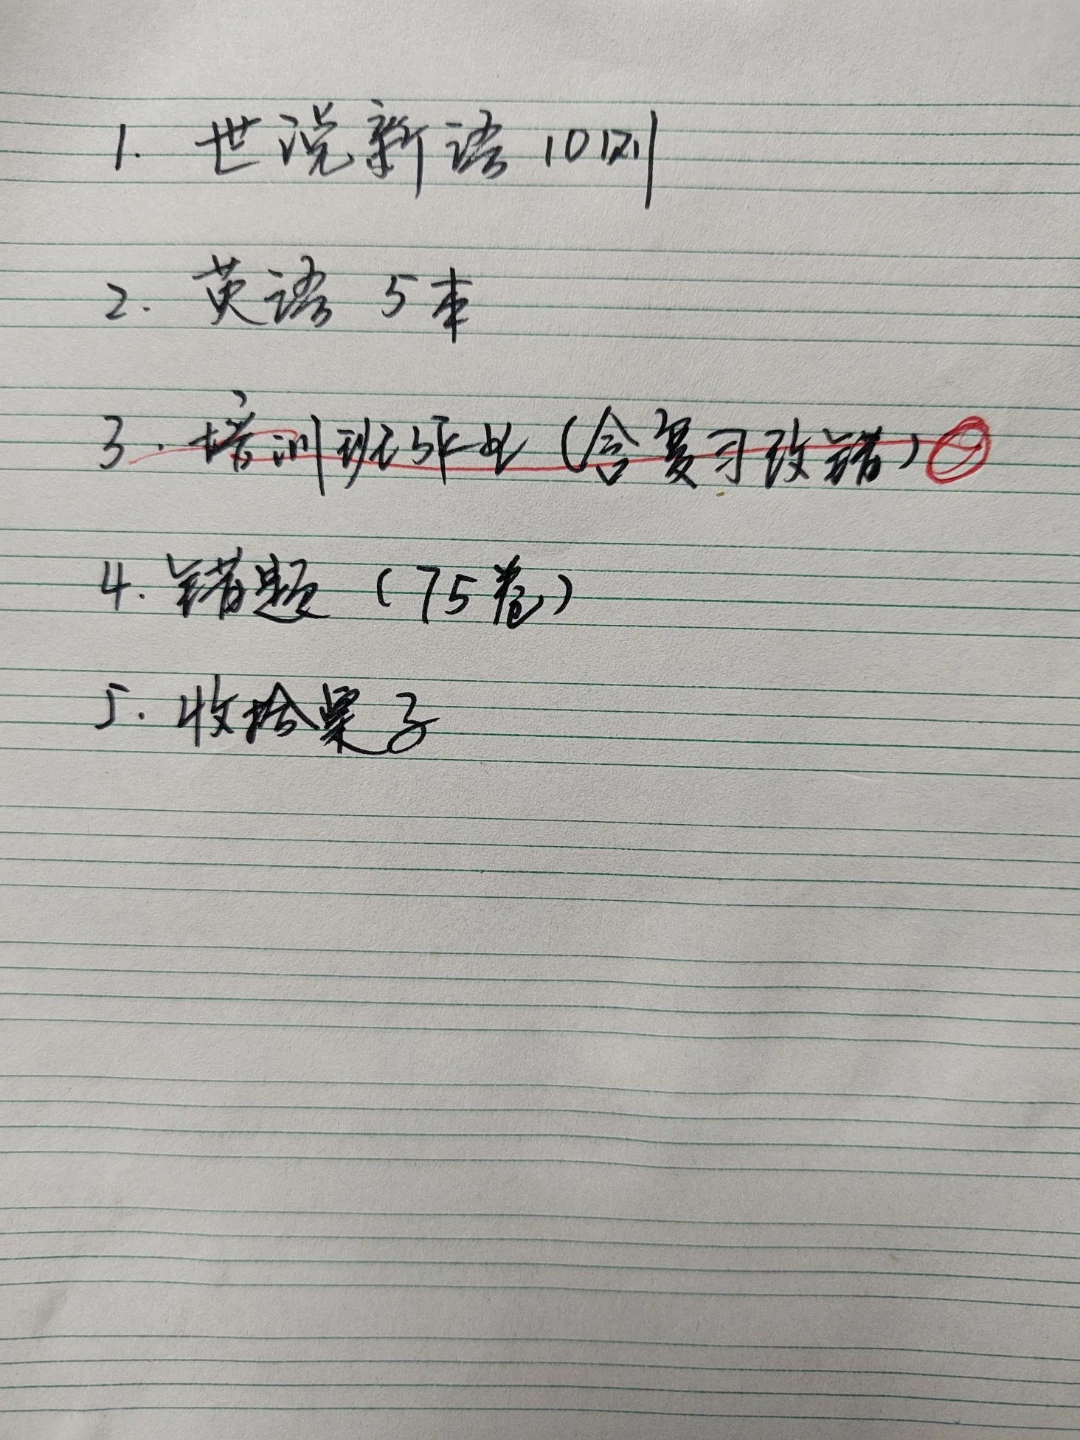 1. 世说新语 10则
2. 英语 5本
3. 培训班作业（含复习改错）
4. 错题（75卷）
5. 收拾桌子